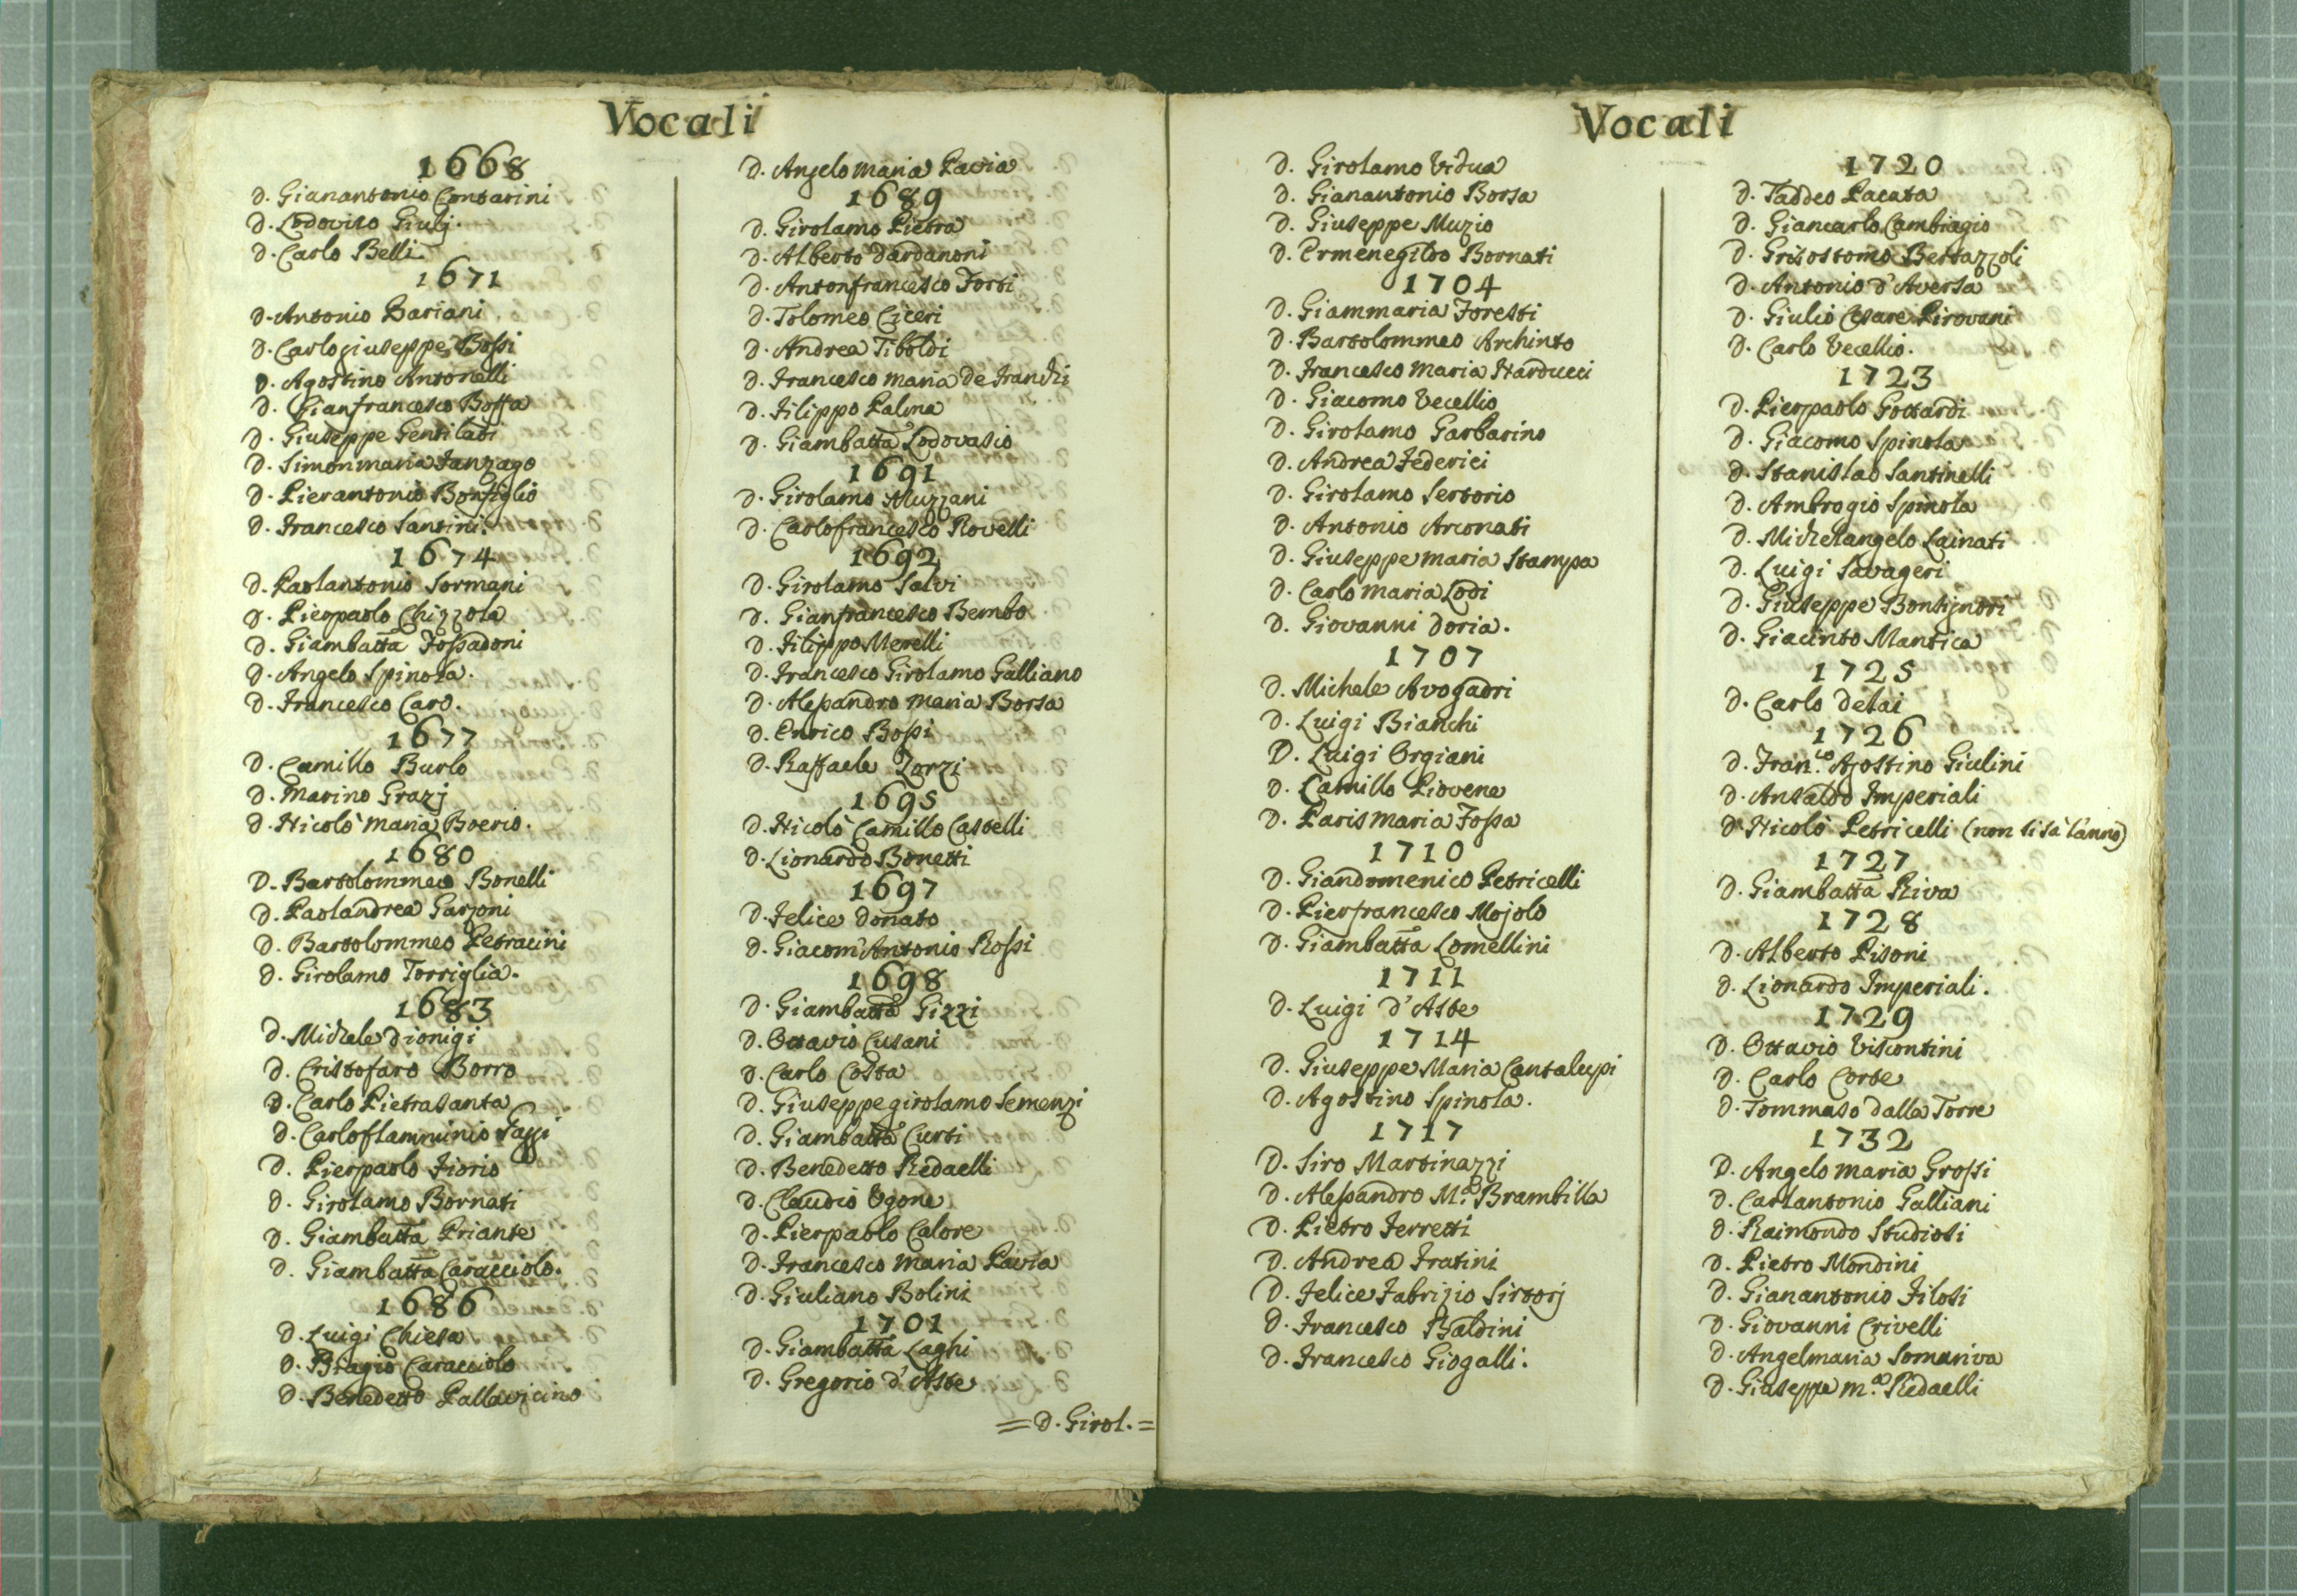 Vocali
1668
D. Gianantonio Contarini
D. Lodovico Giulj.
D. Carlo Belli
1671
D. Antonio Bariani
D. Carlogiuseppe Bossi
D. Agostino Antonelli
D. Gianfrancesco Boffa
D. Giuseppe Gentilati
D. Simonmaria Fanzago
D. Pierantonio Bonfiglio
D. Francesco Santini.
1674
D. Paolantonio Sormani
D. Pierpaolo Chizzola
D. Giambatta Fossadoni
D. Angelo Spinola.
D. Francesco Caro.
1677
D. Camillo Burlo
D. Marino Grazj
D. Nicolò Maria Boerio.
1680
D. Bartolommeo Bonelli
D. Paolandrea Garzoni
D. Bartolommeo Petracini
D. Girolamo Torriglia.
1683
D. Michele Dionigi
D. Cristofaro Borro
D. Carlo Pietrasanta
D. Carloflamminio
D. Pierpaolo Fiorio
D. Girolamo Bornati
D. Giambatta Priante
D. Giambatta Caracciolo.
1686
D. Luigi Chiesa
D. Biagio Caracciolo
D. Benedetto Pallavicino
D. Angelo Maria Pavia
1689
D. Girolamo Pietra
D. Alberto Dardanoni
D. Antonfrancesco Forti
D. Tolomeo Ciceri
D. Andrea Tiboldi
D. Francesco Maria de Franchi
D. Filippo Palma
D. Giambatta Lodovasio
1691
D. Girolamo Muzzani
D. Carlofrancesco Rovelli
1692
D. Girolamo Salvi
D. Gianfrancesco Bembo
D. Filippo Merelli
D. Francesco Girolamo Galliano
D. Alessandro Maria Borsa
D. Enrico Bossi
D. Raffaele Zorzi
1695
D. Nicolò Camillo Castelli
D. Lionardo Bonetti
1697
D. Felice Donato
D. Giacom'Antonio Rossi
1698
D. Giambatta Gizzi
D. Ottavio Cusani
D. Carlo Costa
D. Giuseppegirolamo Semenzi
D. Giambatta Curti
D. Benedetto Redaelli
D. Claudio Ugone
D. Pierpaolo Calore
D. Francesco Maria Pavia
D. Giuliano Bolini
1701
D. Giambatta Laghi
D. Gregorio d'Aste
= D. Girol. =
Vocali
D. Girolamo Vidua
D. Gianantonio Borsa
D. Giuseppe Muzio
D. Ermenegildo Bornati
1704
D. Giammaria Foresti
D. Bartolommeo Archinto
D. Francesco Maria Narducci
D. Giacomo Vecellio
D. Girolamo Garbarino
D. Andrea Federici
D. Girolamo Sertorio
D. Antonio Arconati
D. Giuseppe Maria Stampa
D. Carlo Maria Lodi
D. Giovanni Doria.
1707
D. Michele Avogadri
D. Luigi Bianchi
D. Luigi Orgiani
D. Camillo Piovene
D. Paris Maria Fossa
1710
D. Giandomenico Petricelli
D. Pierfrancesco Mojolo
D. Giambatta Lomellini
1711
D. Luigi d'Aste
1714
D. Giuseppe Maria Cantalupi
D. Agostino Spinola.
1717
D. Siro Martinazzi
D. Alessandro M.ª Brambilla
D. Pietro Ferretti
D. Andrea Fratini
D. Felice Fabrizio Sirtorj
D. Francesco Baldini
D. Francesco Giogalli.
1720
D. Taddeo Pacata
D. Giancarlo Cambiagio
D. Grisostomo Bertazzoli
D. Antonio d'Aversa
D. Giulio Cesare Pirovani
D. Carlo Vecellio.
1723
D. Pierpaolo Gottardi
D. Giacomo Spinola
D. Stanislao Santinelli
D. Ambrogio Spinola
D. Michelangelo Lainati
D. Luigi Savageri
D. Giuseppe Bonsignori
D. Giacinto Mantica
1725
D. Carlo Detai
1726
D. Fran.co Agostino Giulini
D. Ansaldo Imperiali
D. Nicolò Petricelli (non si sa l'anno)
1727
D. Giambatta Riva
1728
D. Alberto Pisoni
D. Lionardo Imperiali.
1729
D. Ottavio Visconti
D. Carlo Corte
D. Tommaso dalla Torre
1732
D. Angelo Maria Grossi
D. Carlantonio Galliani
D. Raimondo Studiosi
D. Pietro Mondini
D. Gianantonio Filosi
D. Giovanni Crivelli
D. Angelmaria Somariva
D. Giuseppe M.ª Redaelli